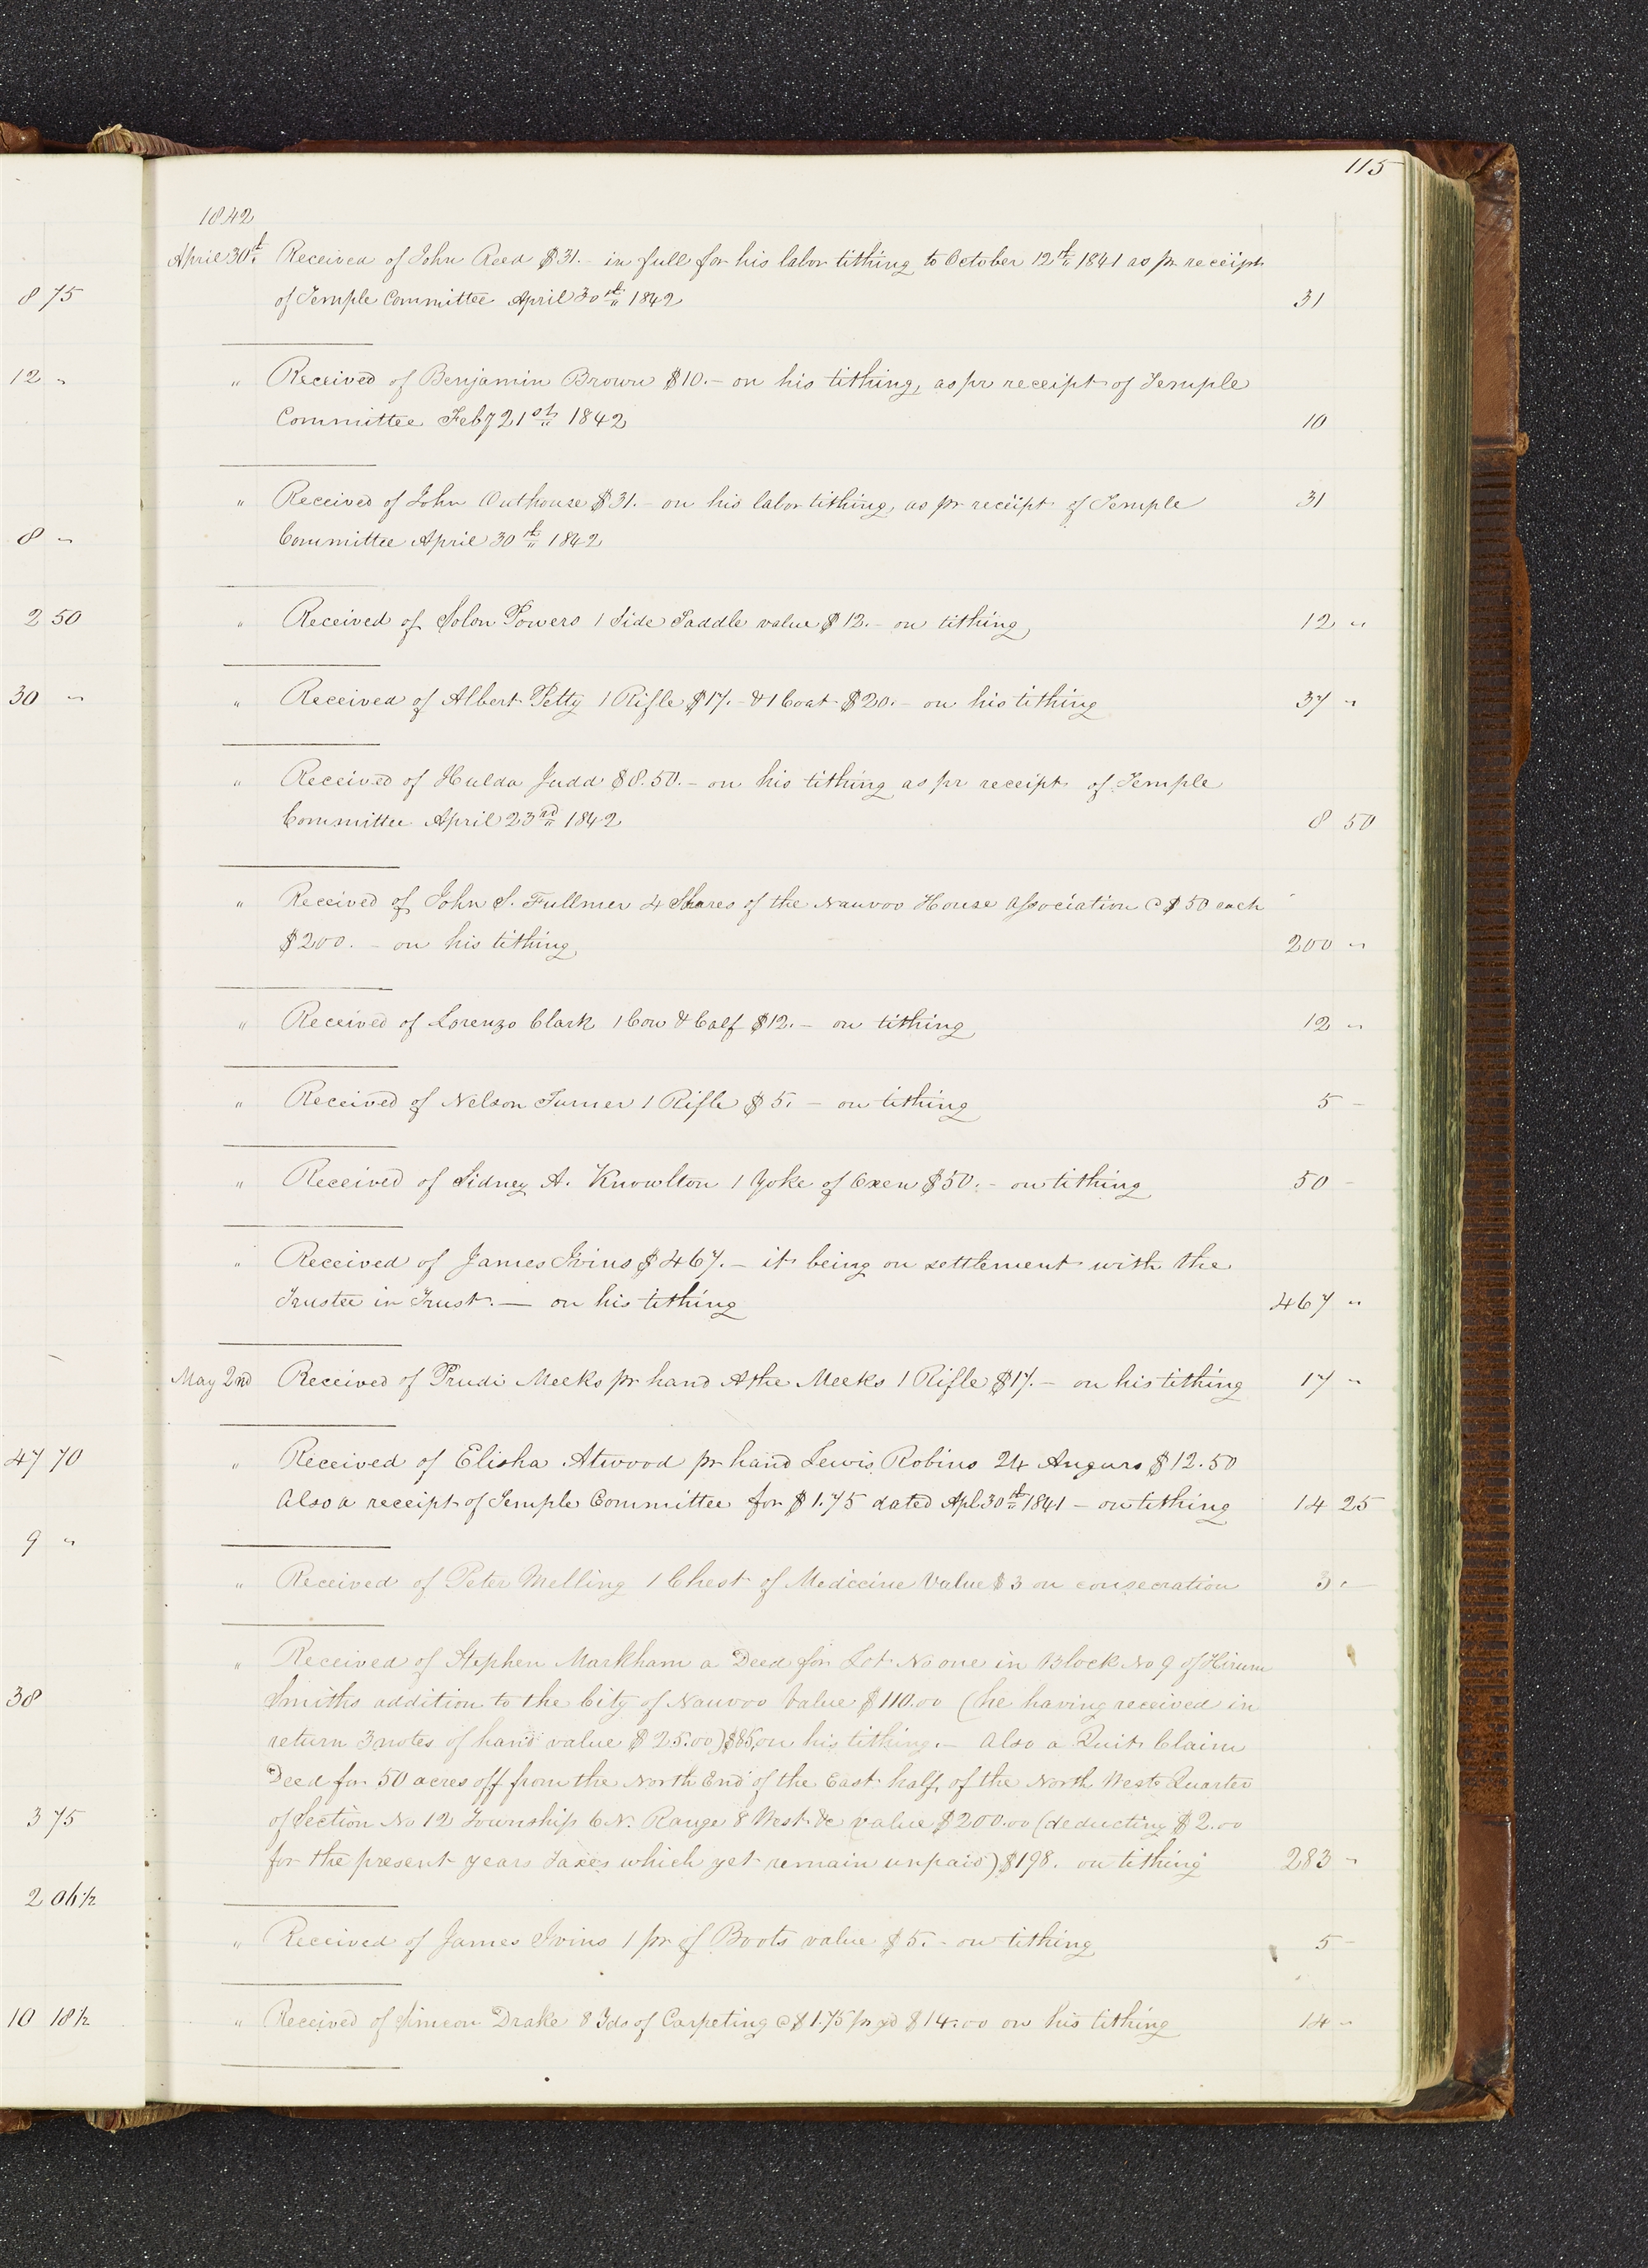 115
1842
April 30th Received of John Reed $31.- in full for his labor tithing to October 12th 1841 as pr receipt
8 75
of Temple Committee April 30th 1842 31
12 "
" Received of Benjamin Brown $10.- on his tithing, as pr receipt of Temple
Committee Feby 21st 1842 10
" Received of John Outhouse $31.- on his labor tithing, as pr receipt of Temple 31
8 "
Committee April 30th 1842
2 50
" Received of Solon Powers 1 Side Saddle value $12.- on tithing 12 "
30 "
" Received of Albert Petty 1 Rifle $17.- & 1 Coat $20.- on his tithing 37 "
" Received of Hulda Judd $8.50.- on his tithing as pr receipt of Temple
Committee April 23rd 1842 8 50
" Received of John S. Fullmer 4 Shares of the Nauvoo House Association @ $50 each
$200.- on his tithing 200 "
" Received of Lorenzo Clark 1 Cow & Calf $12.- on tithing 12 "
" Received of Nelson Turner 1 Rifle $5.- on tithing 5 -
" Received of Sidney A. Knowlton 1 Yoke of Oxen $50.- on tithing 50 -
" Received of James Ivins $467.- it being on settlement with the
Trustee in Trust.- on his tithing 467 "
May 2nd Received of Prudi Meeks pr hand Athe Meeks 1 Rifle $17.- on his tithing 17 "
47 70
" Received of Elisha Atwood pr hand Lewis Robins 24 Augurs $12.50
Also a receipt of Temple Committee for $1.75 dated Apl 30th 1841 - on tithing 14 25
9 "
" Received of Peter Melling 1 Chest of Medicine Value $3 on consecration 3. -
" Received of Stephen Markham a Deed for Lot No one in Block No 9 of Hirum
38
Smiths addition to the City of Nauvoo Value $110.00 (he having received in
return 3 notes of hand value $25.00) $85, on his tithing.- Also a Quit Claim
Deed for 50 acres off from the North End of the East half, of the North West Quarter
3 75
of Section No 12 Township 6 N. Range 8 West &c value $200.00 (deducting $2.00
for the present years Taxes which yet remain unpaid) $198. on tithing 283 "
2 06½
" Received of James Ivins 1 pr of Boots value $5.- on tithing 5 -
10 18½
" Received of Simeon Drake 8 Yds of Carpeting @ $1.75 pr yd $14.00 on his tithing 14 "